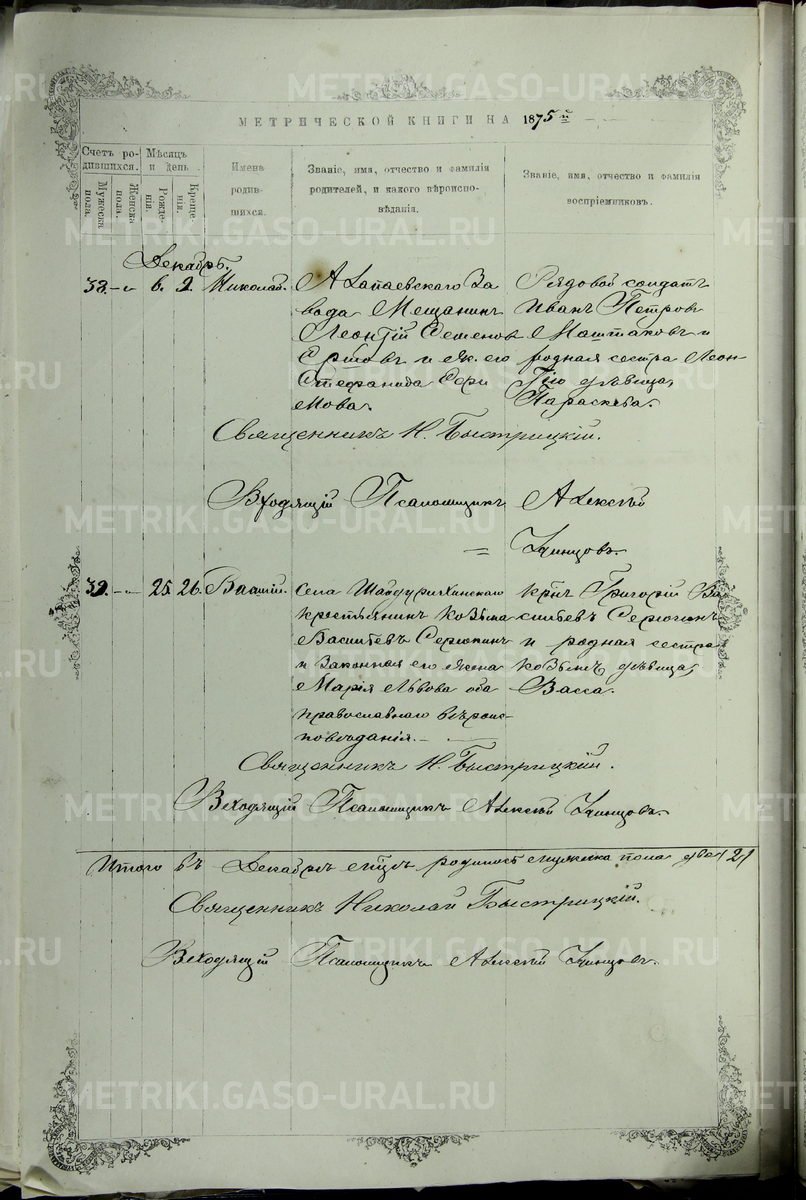 МЕТРИЧЕСКОЙ КНИГИ НА 1875й
Счетъ ро-
дившихся.
Мужеска
пола.
Женска
пола.
Мѣсяцъ
и день
Рожде-
нія.
Креще-
нія.
Имена
родив-
шихся.
Званіе, имя, отчество и фамилія
родителей, и какого вѣроиспо-
вѣданія.
Званіе, имя, отчество и фамилія
воспріемниковъ.
Декабрь.
38. 6. 9. Николай.
Алапаевскаго За
вода Мещанинъ
Леонтій Семеновъ
Ершовъ и ж. его
Стефанида Ефи
мова.
Рядовой солдатъ
Иванъ Петровъ
Маштаковъ и
родная сестра Леон
тію дѣвица,
Параскѣва.
Священникъ Н. Быстрицкій.
Входящій Псаломщикъ Алексѣй
Удинцовъ.
39. 25. 26. Василій.
Села Шайдурихинскаго
крестьянинъ Козьма
Васильевъ Серюгинъ
и законная его жена
Марія Львова оба
православнаго вѣроис-
повѣданія.
крнъ Григорій Ва
сильевъ Серюгинъ
и родная сестра
Козьмѣ дѣвица,
Васса.
Священникъ Н. Быстрицкій.
Входящій Псаломщикъ Алексѣй Удинцовъ.
Итого въ Декабрѣ мцѣ родилось мужеска пола два /2/
Священникъ Николай Быстрицкій.
Входящій Псаломщикъ Алексѣй Удинцовъ.
METRIKI.GASO-URAL.RU